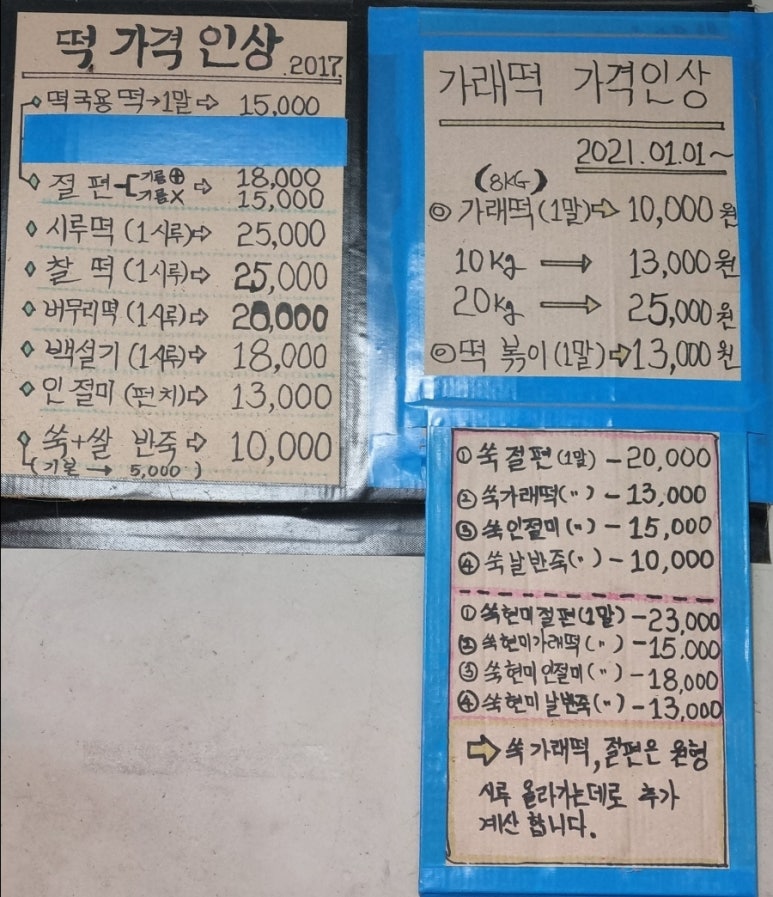 떡 가격 인상 .2017.
◇ 떡국용 떡→1말 ⇨ 15,000
◇ 절편 -[ 기름⊕ ⇨ 18,000
기름× 15,000
◇ 시루떡 (1시루)⇨ 25,000
◇ 찰떡 (1시루)⇨ 25,000
◇ 버무리떡 (1시루)⇨ 20,000
◇ 백설기 (1시루)⇨ 18,000
◇ 인절미 (펀치)⇨ 13,000
◇ 쑥+쌀 반죽 ⇨ 10,000
(기본 → 5,000)
가래떡 가격인상
2021.01.01~
(8KG)
◎ 가래떡(1말)⇨ 10,000원
10kg → 13,000원
20kg → 25,000원
◎ 떡볶이(1말)⇨13,000원
① 쑥절편(1말) - 20,000
② 쑥가래떡(〃) - 13,000
③ 쑥인절미(〃) - 15,000
④ 쑥날반죽(〃) - 10,000
① 쑥현미절편(1말) - 23,000
② 쑥현미가래떡(〃) - 15.000
③ 쑥현미인절미(〃) - 18,000
④ 쑥현미날반죽(〃) - 13,000
⇨ 쑥가래떡, 절편은 원형
시루 올라가는데로 추가
계산 합니다.